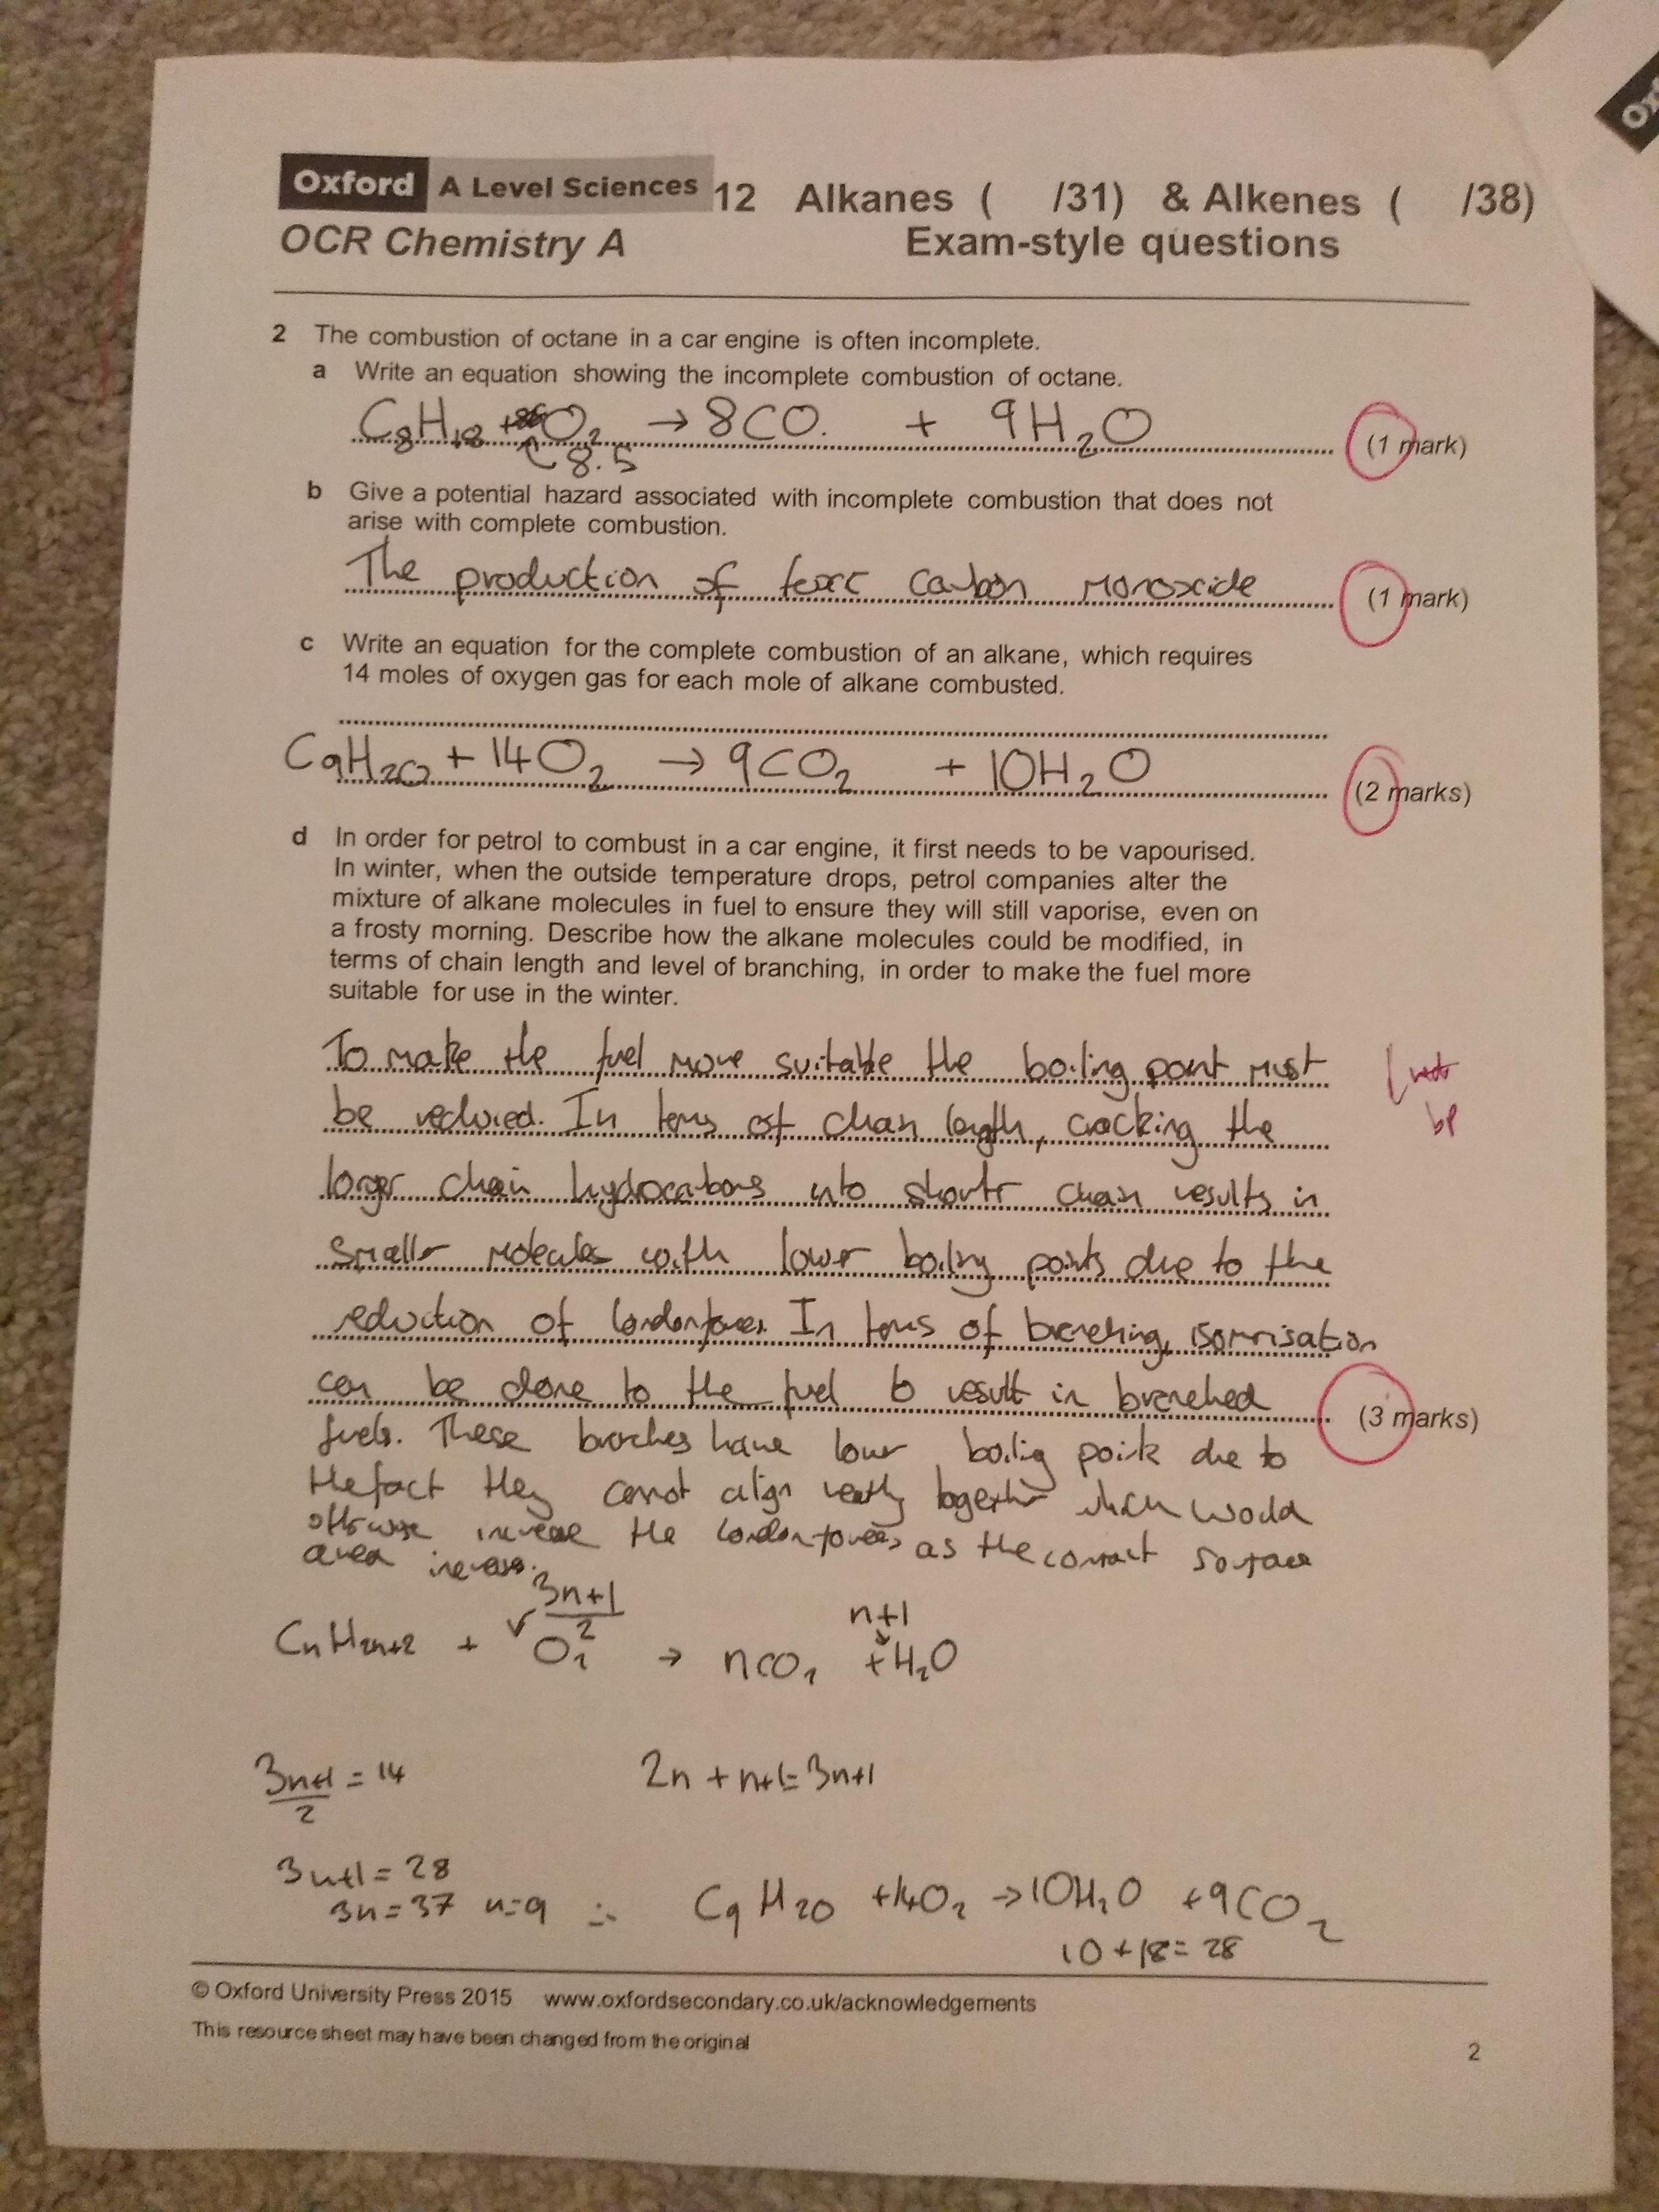 Oxford A Level Sciences 12 Alkanes ( /31) & Alkenes ( /38)
OCR Chemistry A Exam-style questions
2 The combustion of octane in a car engine is often incomplete.
a Write an equation showing the incomplete combustion of octane.
C8H18 + O2 → 8CO. + 9H2O (1 mark)
8.5
b Give a potential hazard associated with incomplete combustion that does not
arise with complete combustion.
The production of carbon monoxide (1 mark)
c Write an equation for the complete combustion of an alkane, which requires
14 moles of oxygen gas for each mole of alkane combusted.
C9H20 + 14O2 → 9CO2 + 10H2O (2 marks)
d In order for petrol to combust in a car engine, it first needs to be vapourised.
In winter, when the outside temperature drops, petrol companies alter the
mixture of alkane molecules in fuel to ensure they will still vaporise, even on
a frosty morning. Describe how the alkane molecules could be modified, in
terms of chain length and level of branching, in order to make the fuel more
suitable for use in the winter.
To make the fuel more suitable the boiling point must
bp
be reduced. In terms of chain length, cracking the
longer chain hydrocarbons into shorter chain results in
smaller molecules with lower boiling points due to the
reduction of london forces. In terms of branching, isomrisation
can be done to the fuel to result in branched (3 marks)
fuels. These branches have lower boiling points due to
the fact they cannot align neatly together which would
otherwise increase the london forces as the contact surface
area increases.
3n+1
2
n+1
CnH2n+2 + O2 → nCO2 + H2O
3n+1 = 14
2
2n + n+1 = 3n+1
3n+1 = 28
3n = 37 n=9 ∴ C9H20 + 14O2 → 10H2O + 9CO2
10 + 18 = 28
© Oxford University Press 2015 www.oxfordsecondary.co.uk/acknowledgements
This resource sheet may have been changed from the original
2